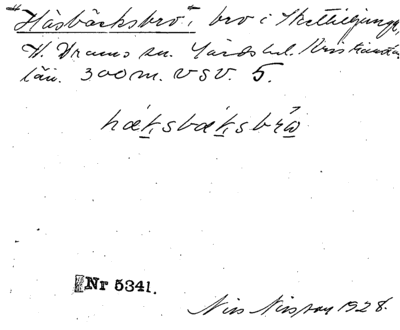 "Häsbäcksbro", bro i Skättiljunga,
V. Vrams sn. Gärds hd. Kristianstads
län. 300 m. VSV. 5.
hæksbæksbrω
Nr 5341.
Nils Nilsson 1928.